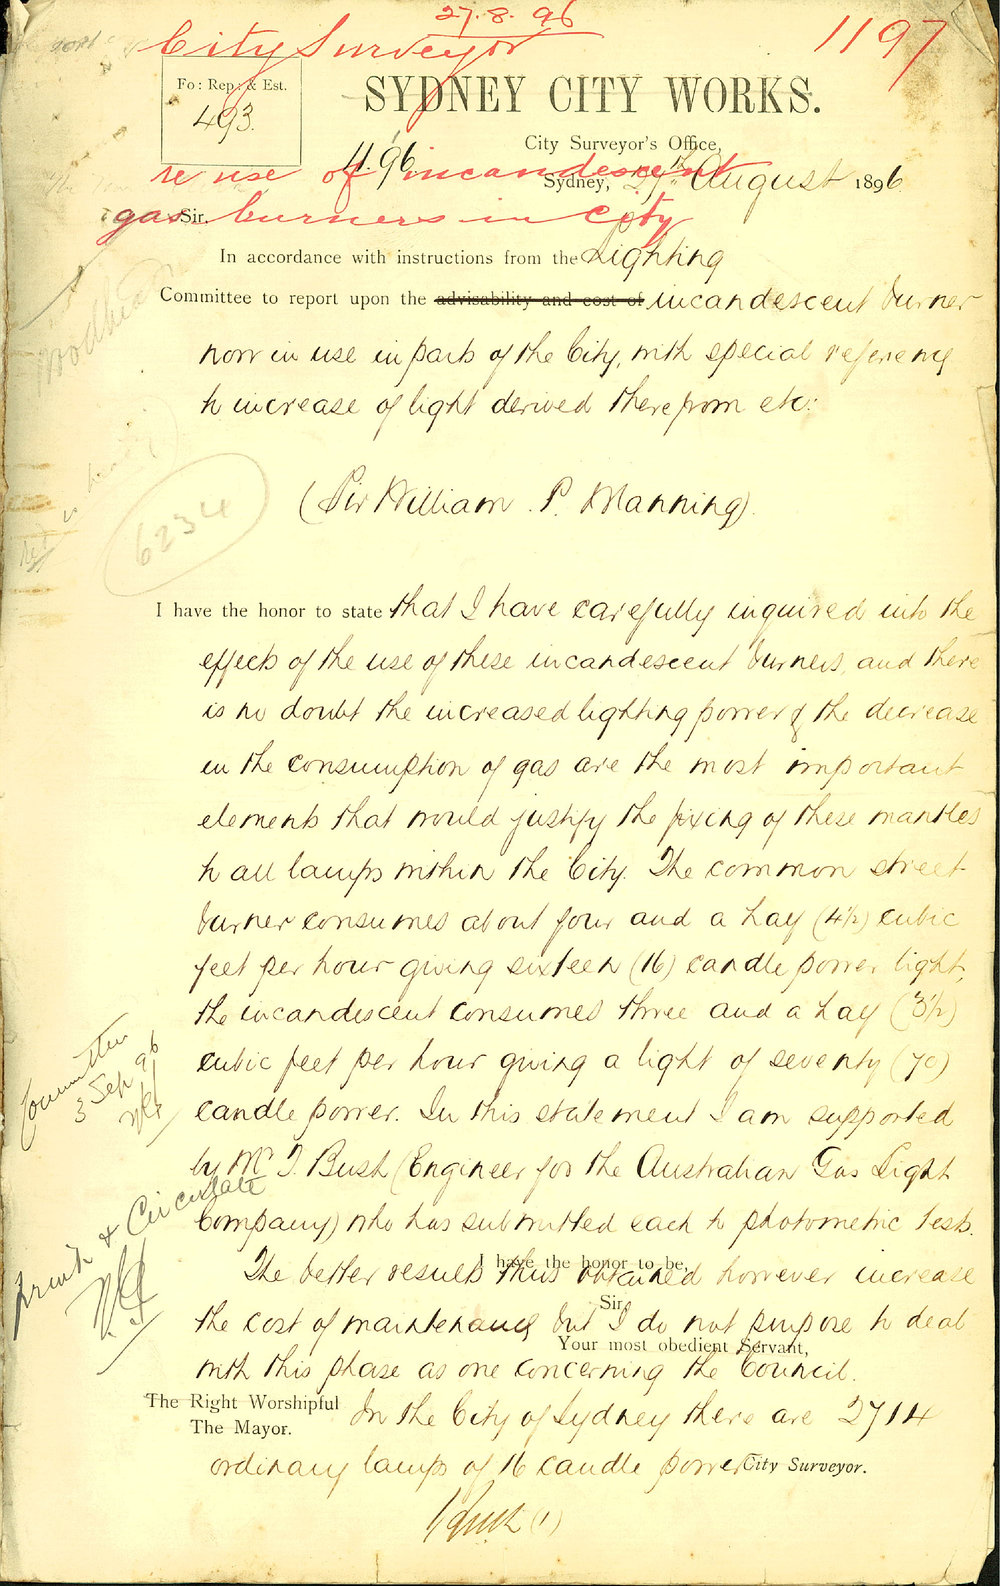 27.8.96
City Surveyor
1197
Fo: Rep: & Est.
493.
SYDNEY CITY WORKS.
City Surveyor's Office,
11.96
Sydney, 27th August 1896
re use of incandescent
gas burners in City
Sir,
In accordance with instructions from the Lighting
Committee to report upon the advisability and cost of incandescent burner
now in use in parts of the City, with special reference
to increase of light derived therefrom etc:
(Sir William . P. Manning).
6234
I have the honor to state that I have carefully inquired into the
effects of the use of these incandescent burners, and there
is no doubt the increased lighting power & the decrease
in the consumption of gas are the most important
elements that would justify the fixing of these mantles
to all lamps within the City. The common street
burner consumes about four and a half (4½) cubic
feet per hour giving sixteen (16) candle power light,
the incandescent consumes three and a half (3½)
cubic feet per hour giving a light of seventy (70)
candle power. In this statement I am supported
by Mr T. Bush (Engineer for the Australian Gas Light
Company) who has submitted each to photometric tests.
Committee
3 Sep 96
Print & Circulate
I have the honor to be,
The better results thus obtained however increase
Sir,
the cost of maintenance but I do not purpose to deal
Your most obedient Servant,
with this phase as one concerning the Council.
The Right Worshipful
The Mayor.
In the City of Sydney there are 2714
ordinary lamps of 16 candle power
City Surveyor.
(1)